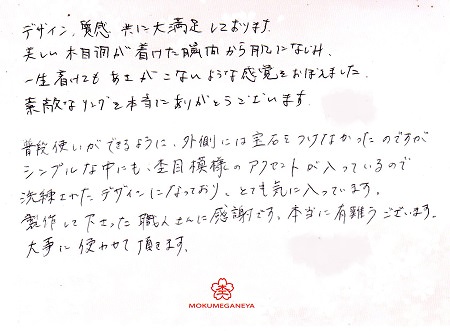 デザイン、質感 共に大満足しております。
美しい木目調が着けた瞬間から肌になじみ、
一生着けてもあきがこないような感覚をおぼえました。
素敵なリングを本当にありがとうございます。
普段使いができるように、外側には宝石をつけなかったのですが
シンプルな中にも、杢目模様のアクセントが入っているので
洗練されたデザインになっており、とても気に入っています。
製作して下さった職人さんに感謝です。本当に有難うございます。
大事に使わせて頂きます。
MOKUMEGANEYA